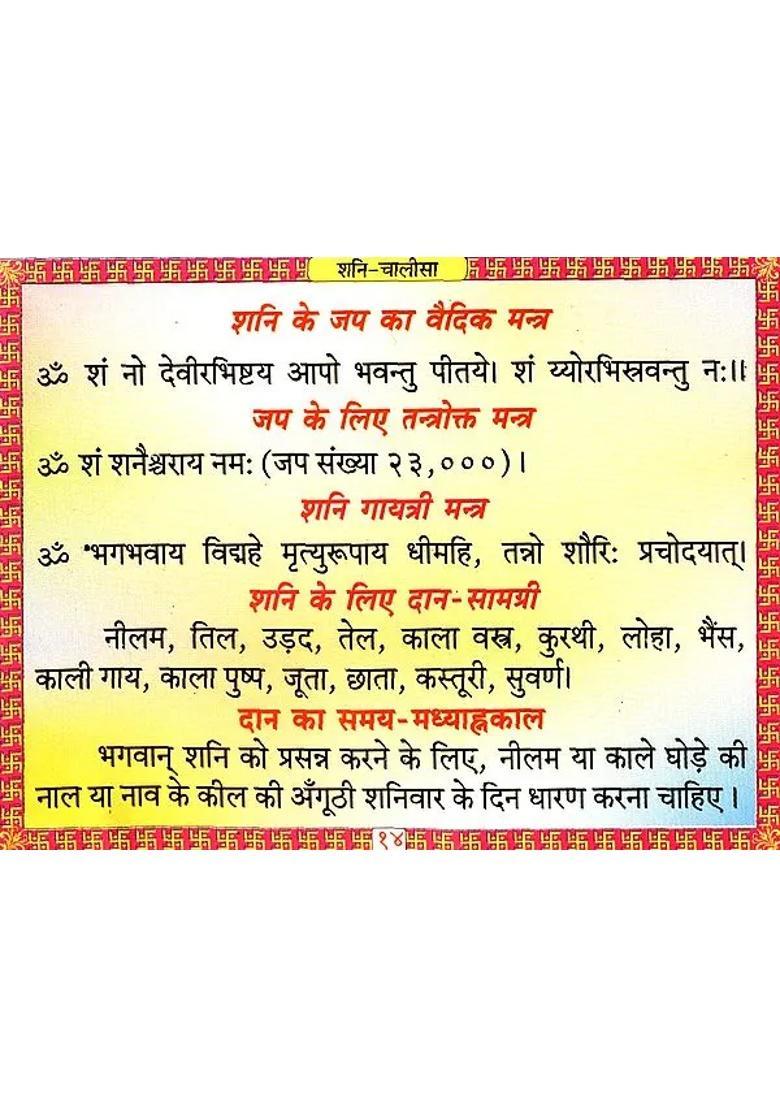 शनि-चालीसा
शनि के जप का वैदिक मन्त्र
ॐ शं नो देवीरभिष्टय आपो भवन्तु पीतये। शं य्योरभिस्रवन्तु न:।।
जप के लिए तन्त्रोक्त मन्त्र
ॐ शं शनैश्चराय नम: (जप संख्या २३,०००)।
शनि गायत्री मन्त्र
ॐ भगभवाय विद्महे मृत्युरूपाय धीमहि, तन्नो शौरि: प्रचोदयात्।
शनि के लिए दान-सामग्री
नीलम, तिल, उड़द, तेल, काला वस्त्र, कुरथी, लोहा, भैंस,
काली गाय, काला पुष्प, जूता, छाता, कस्तूरी, सुवर्ण।
दान का समय-मध्याह्नकाल
भगवान् शनि को प्रसन्न करने के लिए, नीलम या काले घोड़े की
नाल या नाव के कील की अँगूठी शनिवार के दिन धारण करना चाहिए।
१४